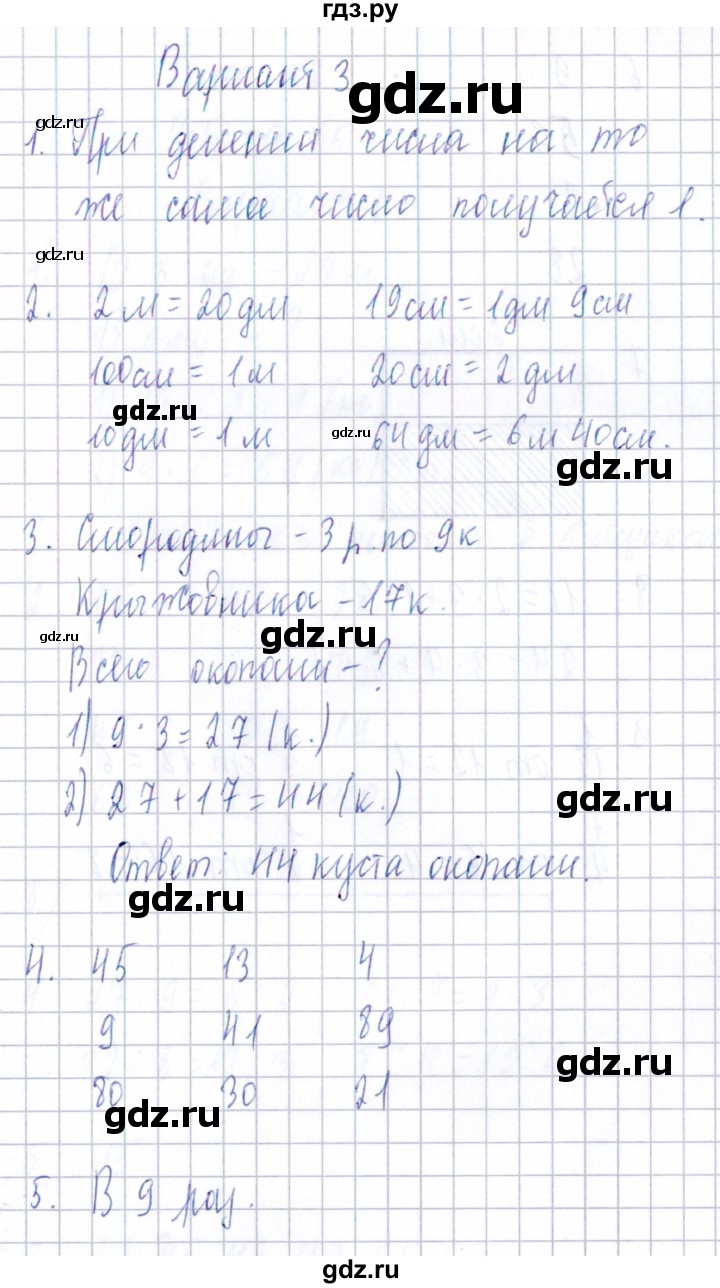 гдз.ру
Вариант 3
gdz.ru
gdz.ru
1. При делении числа на то
же самое число получается 1.
gdz.ru
2. 2 м = 20 дм 19 см = 1 дм 9 см
100 см = 1 м 20 см = 2 дм
gdz.ru
10 дм = 1 м gdz.ru 64 дм = 6 м 40 см.
gdz.ru
3. Смородины - 3 р. по 9 к
Крыжовника - 17 к.
gdz.ru gdz.ru
Всего окопали - ?
1) 9 · 3 = 27 (к.)
2) 27 + 17 = 44 (к.)
gdz.ru
Ответ: 44 куста окопали.
gdz.ru
4. 45 13 4
9 41 89
gdz.ru
80 30 21
gdz.ru
5. В 9 раз.
gdz.ru